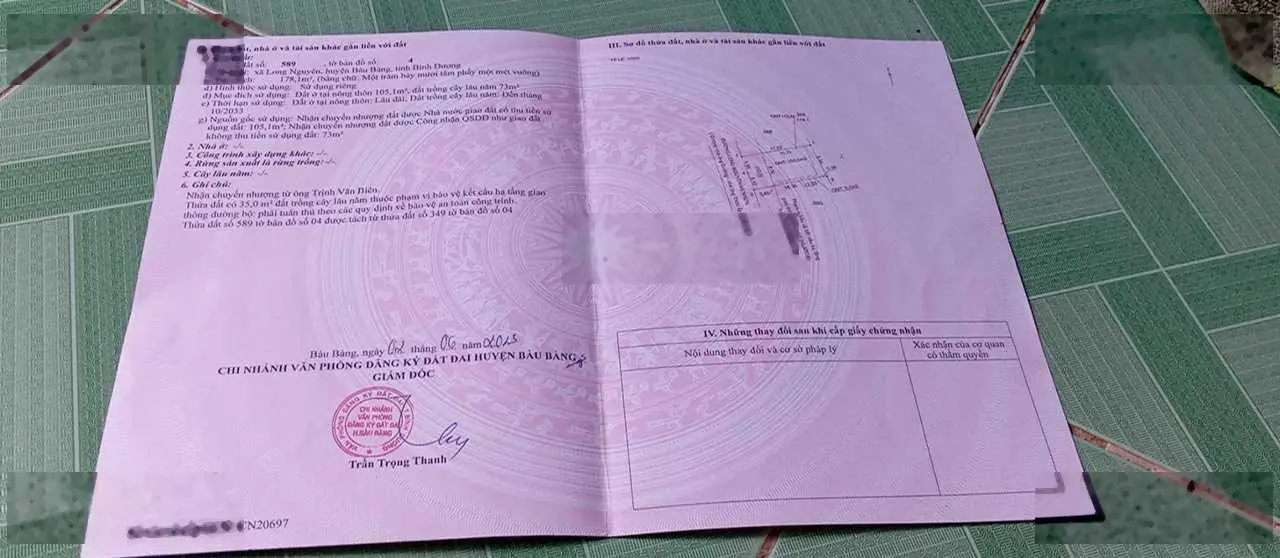 ất, nhà ở và tài sản khác gắn liền với đất
ất số: 589 , tờ bản đồ số: 4
xã Long Nguyên, huyện Bàu Bàng, tỉnh Bình Dương
178,1m², (bằng chữ: Một trăm bảy mươi tám phẩy một mét vuông)
d) Hình thức sử dụng: Sử dụng riêng
đ) Mục đích sử dụng: Đất ở tại nông thôn 105,1m², đất trồng cây lâu năm 73m²
e) Thời hạn sử dụng: Đất ở tại nông thôn: Lâu dài; Đất trồng cây lâu năm: Đến tháng
10/2033
g) Nguồn gốc sử dụng: Nhận chuyển nhượng đất được Nhà nước giao đất có thu tiền sử
dụng đất: 105,1m²; Nhận chuyển nhượng đất được Công nhận QSDĐ như giao đất
không thu tiền sử dụng đất: 73m²
2. Nhà ở: -/-
3. Công trình xây dựng khác: -/-
4. Rừng sản xuất là rừng trồng: -/-
5. Cây lâu năm: -/-
6. Ghi chú:
Nhận chuyển nhượng từ ông Trịnh Văn Biên.
Thửa đất có 35,0 m² đất trồng cây lâu năm thuộc phạm vi bảo vệ kết cấu hạ tầng giao
thông đường bộ: phải tuân thủ theo các quy định về bảo vệ an toàn công trình.
Thửa đất số 589 tờ bản đồ số 04 được tách từ thửa đất số 349 tờ bản đồ số 04
Bàu Bàng, ngày 02 tháng 06 năm 2023
CHI NHÁNH VĂN PHÒNG ĐĂNG KÝ ĐẤT ĐAI HUYỆN BÀU BÀNG
GIÁM ĐỐC
CHI NHÁNH
VĂN PHÒNG
ĐĂNG KÝ ĐẤT ĐAI
H.BÀU BÀNG
Trần Trọng Thanh
CN20697
III. Sơ đồ thửa đất, nhà ở và tài sản khác gắn liền với đất
IV. Những thay đổi sau khi cấp giấy chứng nhận
Nội dung thay đổi và cơ sở pháp lý
Xác nhận của cơ quan
có thẩm quyền